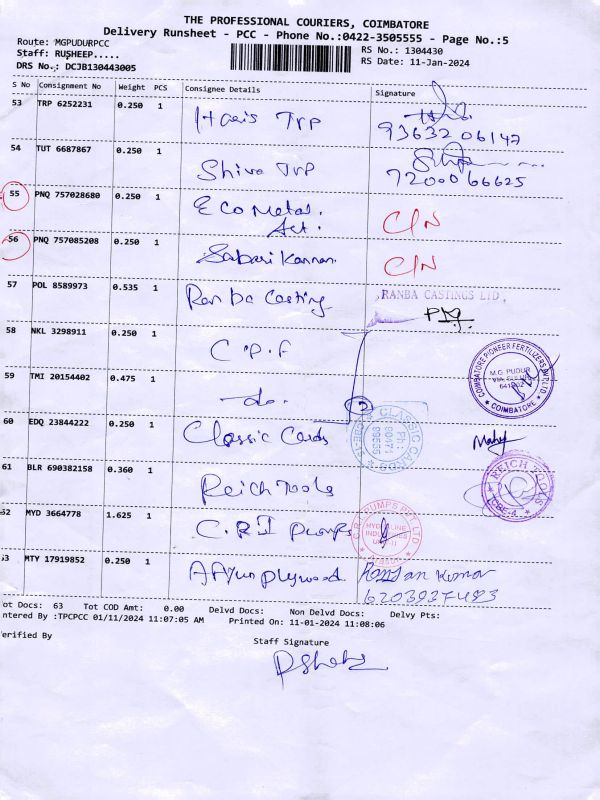 THE PROFESSIONAL COURIERS, COIMBATORE
Delivery Runsheet - PCC - Phone No.:0422-3505555 - Page No.:5
Route: MGPUDURPCC
RS No.: 1304430
Staff: RUSHEEP.....
RS Date: 11-Jan-2024
DRS No.: DCJB130443005
S No Consignment No Weight PCS Consignee Details Signature
53 TRP 6252231 0.250 1 Haris Trp
9363206147
54 TUT 6687867 0.250 1 Shiva Trp
7200066625
55 PNQ 757028680 0.250 1 Eco Metal. C/N
56 PNQ 757085208 0.250 1 Sabari Kannan. C/N
57 POL 8589973 0.535 1 Ranba Casting RANBA CASTINGS LTD.
58 NKL 3298911 0.250 1 C.P.F
COIMBATORE PIONEER FERTILIZERS PVT LTD
M.G. PUDUR
COIMBATORE
59 TMI 20154402 0.475 1 -do-
60 EDQ 23844222 0.250 1 Classic Cards
CLASSIC CARDS
61 BLR 690382158 0.360 1 Reich Tools
REICH TOOLS
CBE-4
62 MYD 3664778 1.625 1 C.R.I pumps
C.R.I. PUMPS PVT LTD
63 MTY 17919852 0.250 1 plywood Ranjan Kumar
6203927483
ot Docs: 63 Tot COD Amt: 0.00 Delvd Docs: Non Delvd Docs: Delvy Pts:
ntered By :TPCPCC 01/11/2024 11:07:05 AM Printed On: 11-01-2024 11:08:06
erified By
Staff Signature